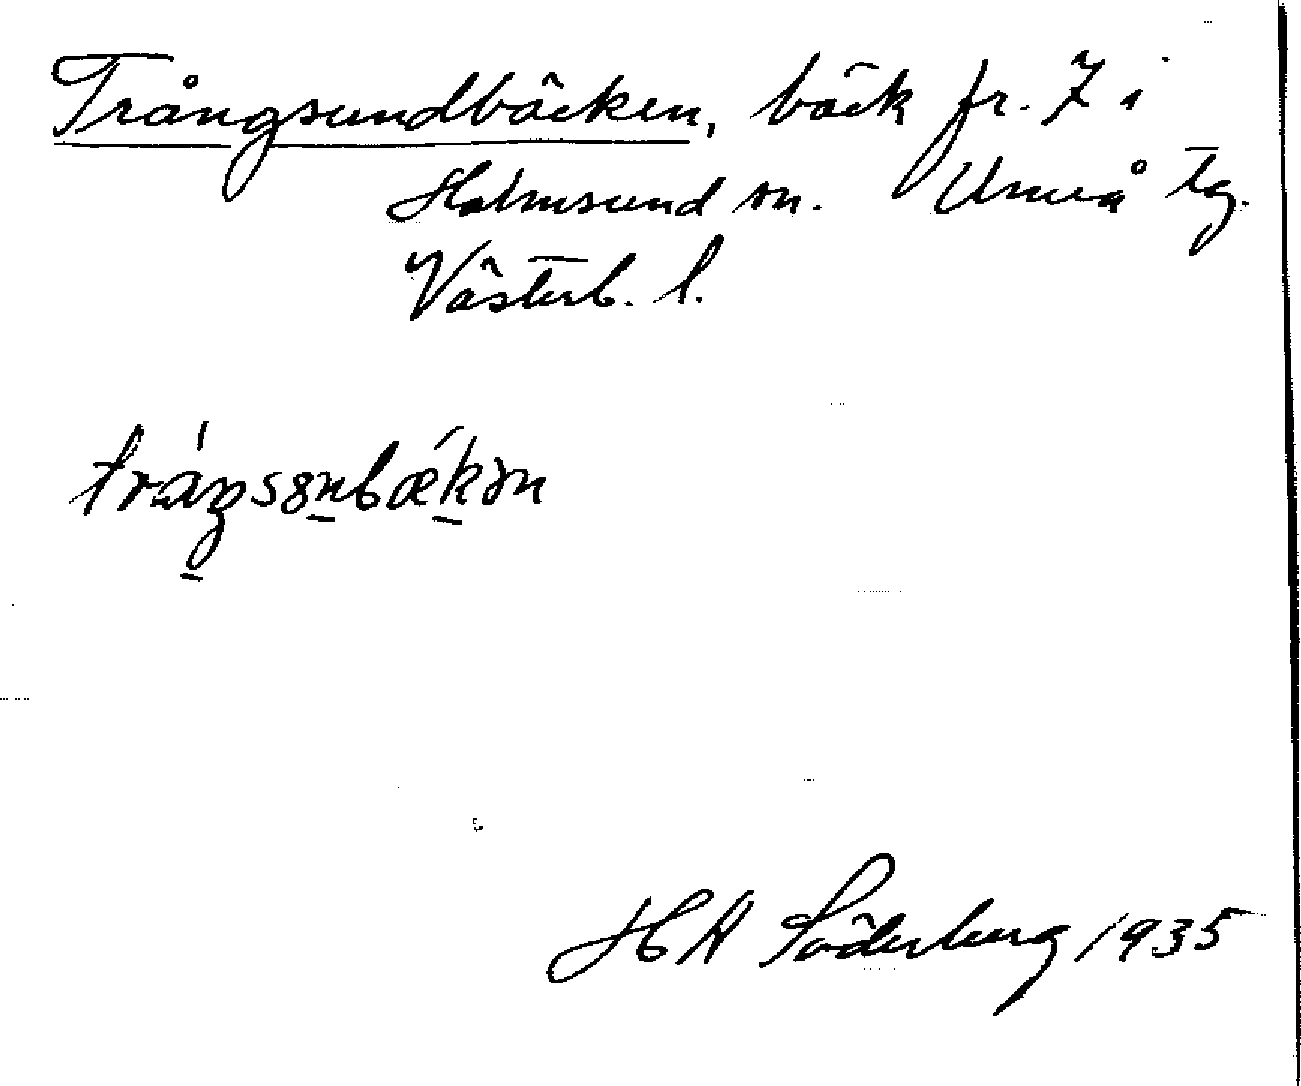 Trångsundbäcken, bäck fr. 7 i
Holmsund sn. Umeå tg.
Västerb. l.
tráŋsꞷnbækən
H A Söderberg 1935